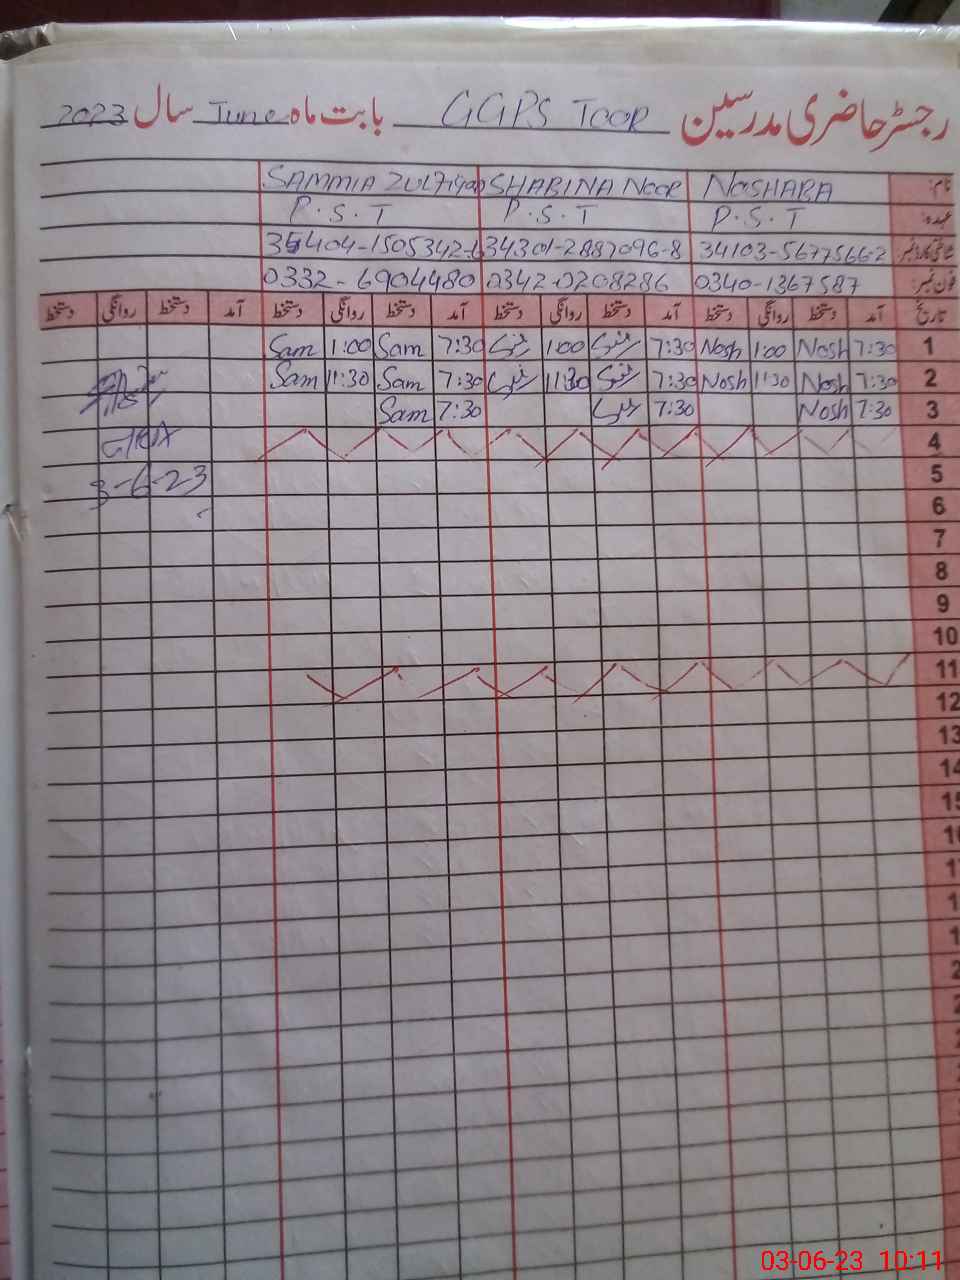 رجسٹر حاضری مدرسین GGPS TOOR بابت ماہ June سال 2023
نام: NOSHABA SHABINA NOOR SAMMIA
عہدہ: P.S.T P.S.T P.S.T
34103-5677566-2 34301-2887096-8
فون نمبر: 0340-1367587 0342-0208286 0332-6904480
تاریخ آمد دستخط روانگی دستخط آمد دستخط روانگی دستخط آمد دستخط روانگی دستخط آمد دستخط روانگی دستخط
1 7:30 Nosh 1:00 Nosh 7:30 1:00 7:30 Sam 1:00 Sam
2 7:30 Nosh 11:30 Nosh 7:30 11:30 7:30 Sam 11:30 Sam
3 7:30 Nosh 7:30 7:30 Sam
4
5 3-6-23
6
7
8
9
10
11
12
13
14
15
03-06-23 10:11